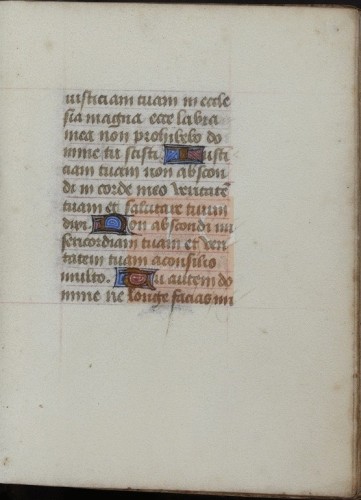 iusticiam tuam in eccle
sia magna ecce labia
mea non prohibebo do
mine tu scisti. Iusti
ciam tuam non abscon
di in corde meo veritatē
tuam et salutare tuum
dixi. Non abscondi mi
sericordiam tuam et veri
tatem tuam a consilio
multo. Tu autem do
mine ne longe facias mi